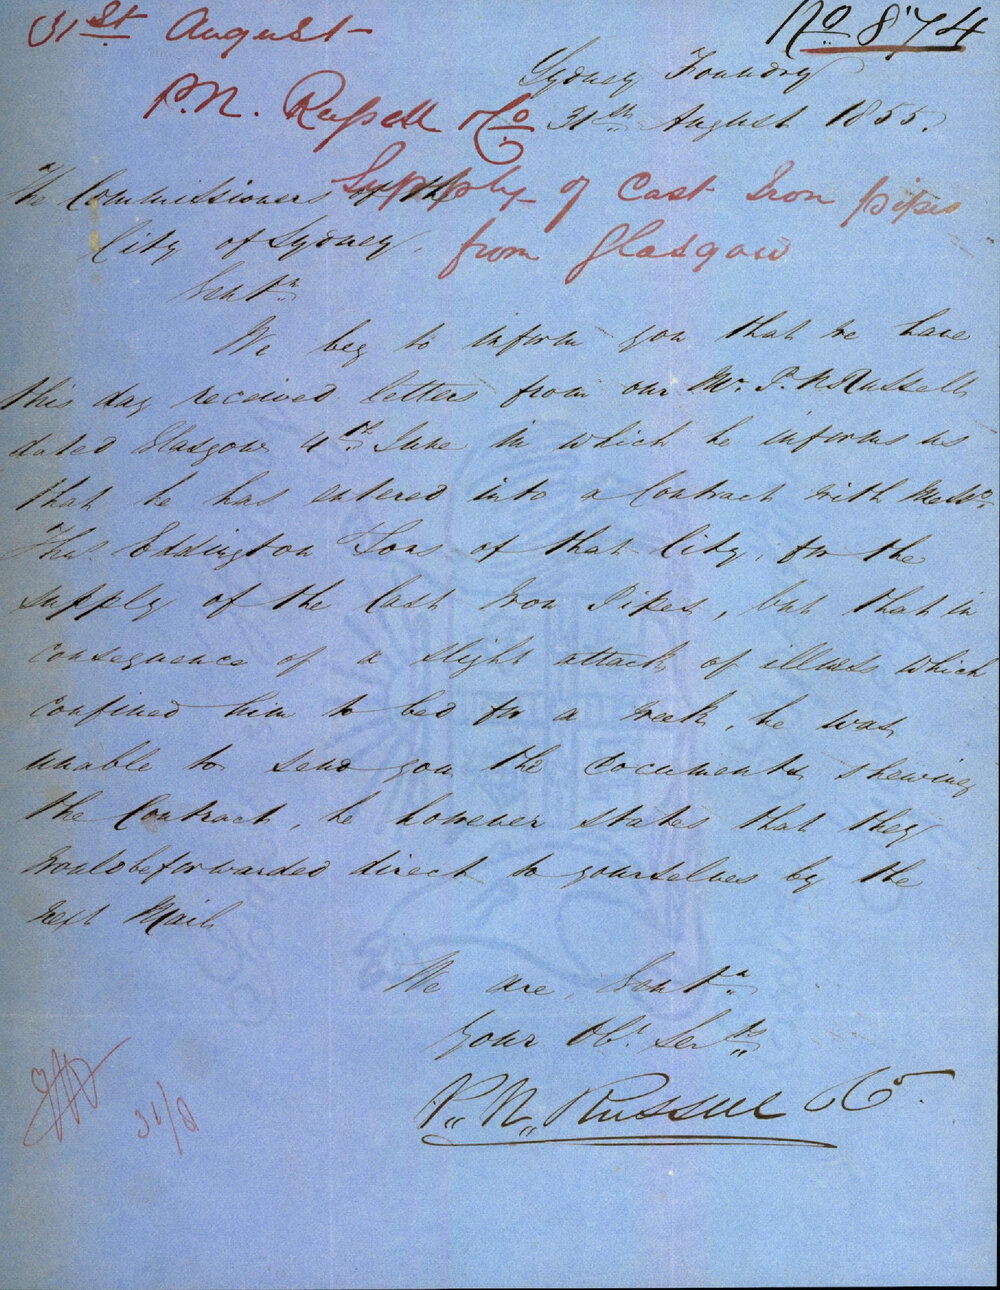 31st August
No 874
Sydney Foundry
P.N. Russell & Co
31st August 1855.
Supply of Cast Iron pipes
from Glasgow
The Commissioners of the
City of Sydney,
Gentn
We beg to inform you that we have
this day received letters from our Mr. P. N Russell
dated Glasgow 4th June in which he informs us
that he has entered into a Contract with Messrs
Thos Eddington Sons of that City, for the
supply of the Cast Iron Pipes, but that in
consequence of a slight attack of illness which
confined him to bed for a week, he was
unable to send you the documents shewing
the Contract, he however states that they
would be forwarded direct to yourselves by the
next Mail
We are, Gentn
Your Obt. Servts
P. N. Russell & Co.
31/8